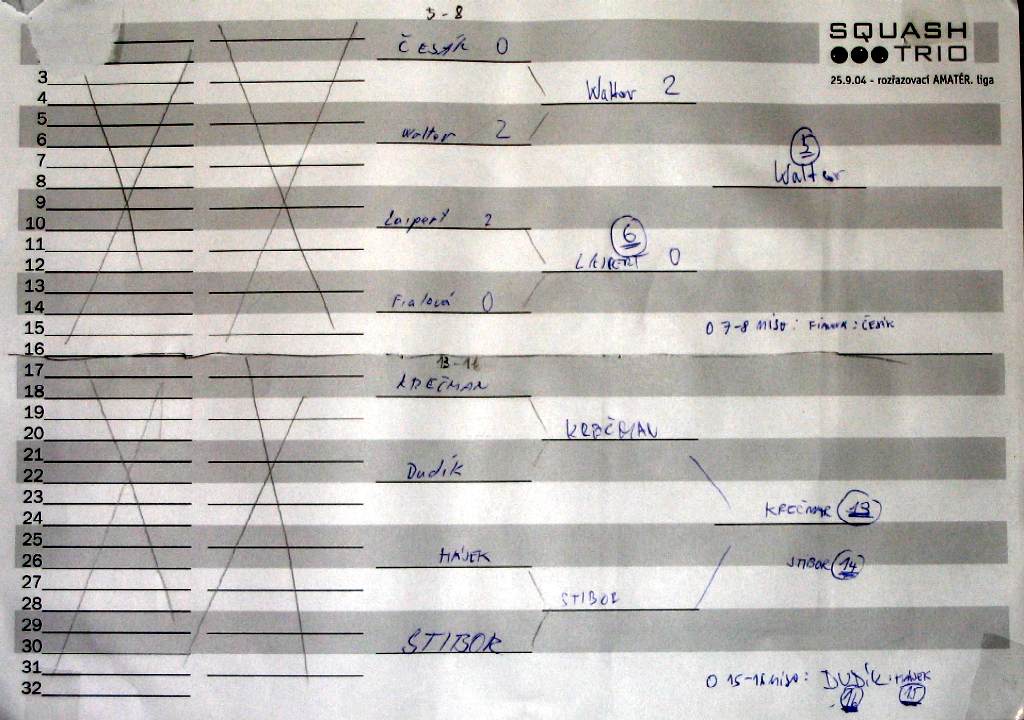 5-8
SQUASH
TRIO
25.9.04 - rozřazovací AMATÉR. liga
ČESÍK 0
3
4
Walter 2
5
6
Walter 2
7
8
5
Walter
9
10
Laipert 2
11
12
6
LAIPERT 0
13
14
Fialová 0
15
O 7-8 MÍSO: FIALOVÁ : ČESÍK
16
17
18
KREČMAN
19
20
KREČMAN
21
22
Dudík
23
24
KREČMAR 13
25
26
HÁJEK
STIBOR 14
27
28
STIBOR
29
30
STIBOR
31
32
O 15-16 MÍSO: DUDÍK : HÁJEK
16 15